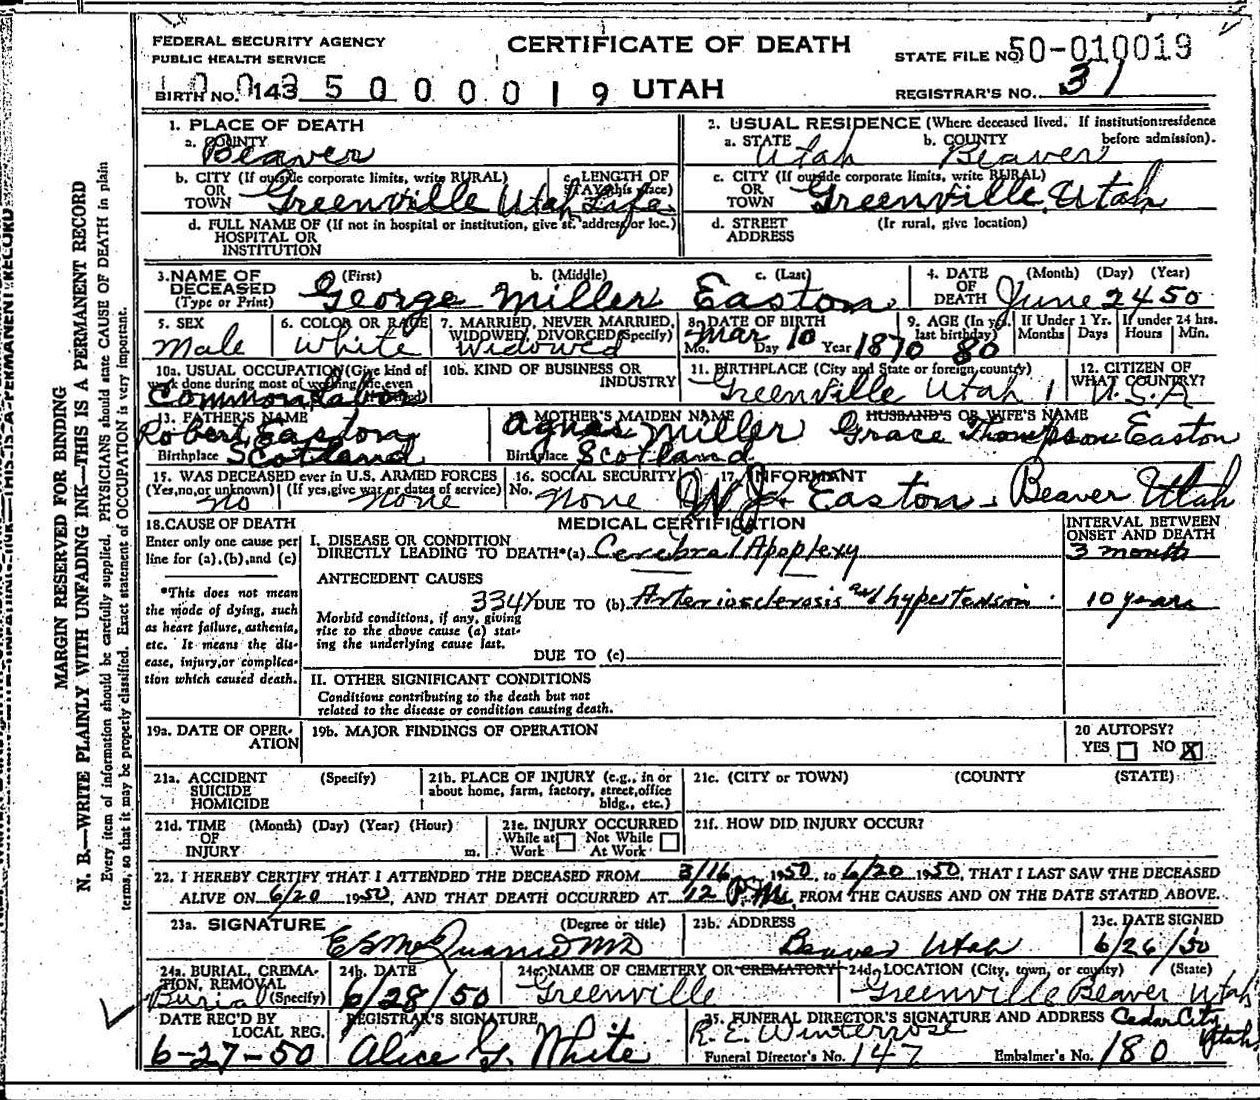 FEDERAL SECURITY AGENCY
PUBLIC HEALTH SERVICE
CERTIFICATE OF DEATH
UTAH
STATE FILE NO. 50-010019
BIRTH NO. 143 5 0 0 0 0 1 9
REGISTRAR'S NO. 31
1. PLACE OF DEATH
a. COUNTY Beaver
2. USUAL RESIDENCE (Where deceased lived. If institution:residence before admission).
a. STATE Utah b. COUNTY Beaver
b. CITY (If outside corporate limits, write RURAL) OR TOWN Greenville Utah
c. LENGTH OF STAY (in this place) Life
c. CITY (If outside corporate limits, write RURAL) OR TOWN Greenville, Utah
d. FULL NAME OF (If not in hospital or institution, give st. address or loc.) HOSPITAL OR INSTITUTION
d. STREET ADDRESS (If rural, give location)
3. NAME OF DECEASED (Type or Print) (First) b. (Middle) c. (Last)
George Miller Easton
4. DATE OF DEATH (Month) (Day) (Year) June 24 50
5. SEX Male
6. COLOR OR RACE White
7. MARRIED, NEVER MARRIED, WIDOWED, DIVORCED (Specify) Widowed
8. DATE OF BIRTH Mo. Mar Day 10 Year 1870
9. AGE (In yrs. last birthday) 80
If Under 1 Yr. Months Days
If under 24 hrs. Hours Min.
10a. USUAL OCCUPATION (Give kind of work done during most of working life, even if retired) Common Labor
10b. KIND OF BUSINESS OR INDUSTRY
11. BIRTHPLACE (City and State or foreign country) Greenville Utah
12. CITIZEN OF WHAT COUNTRY? U.S.A
13. FATHER'S NAME Robert Easton
Birthplace Scotland
MOTHER'S MAIDEN NAME Agnes Miller
Birthplace Scotland
HUSBAND'S OR WIFE'S NAME Grace Thompson Easton
15. WAS DECEASED ever in U.S. ARMED FORCES
(Yes, no, or unknown) no (If yes, give war or dates of service) none
16. SOCIAL SECURITY No. none
17. INFORMANT W J Easton - Beaver Utah
18. CAUSE OF DEATH
Enter only one cause per line for (a), (b), and (c)
*This does not mean the mode of dying, such as heart failure, asthenia, etc. It means the disease, injury, or complication which caused death.
MEDICAL CERTIFICATION
INTERVAL BETWEEN ONSET AND DEATH
I. DISEASE OR CONDITION DIRECTLY LEADING TO DEATH*(a) Cerebral Apoplexy 3 months
ANTECEDENT CAUSES
334X DUE TO (b) Arteriosclerosis and hypertension. 10 years
Morbid conditions, if any, giving rise to the above cause (a) stating the underlying cause last.
DUE TO (c)
II. OTHER SIGNIFICANT CONDITIONS
Conditions contributing to the death but not related to the disease or condition causing death.
19a. DATE OF OPERATION
19b. MAJOR FINDINGS OF OPERATION
20 AUTOPSY? YES NO X
21a. ACCIDENT SUICIDE HOMICIDE (Specify)
21b. PLACE OF INJURY (e.g., in or about home, farm, factory, street, office bldg., etc.)
21c. (CITY or TOWN) (COUNTY (STATE)
21d. TIME OF INJURY (Month) (Day) (Year) (Hour) m.
21e. INJURY OCCURRED While at Work Not While At Work
21f. HOW DID INJURY OCCUR?
22. I HEREBY CERTIFY THAT I ATTENDED THE DECEASED FROM 3/16, 1950, to 6/20 1950, THAT I LAST SAW THE DECEASED
ALIVE ON 6/20 1950, AND THAT DEATH OCCURRED AT 12 P.M., FROM THE CAUSES AND ON THE DATE STATED ABOVE.
23a. SIGNATURE (Degree or title)
MD
23b. ADDRESS Beaver Utah
23c. DATE SIGNED 6/26/50
24a. BURIAL, CREMATION, REMOVAL (Specify) Burial
24b. DATE 6/28/50
24c. NAME OF CEMETERY OR CREMATORY Greenville
24d. LOCATION (City, town, or county) (State) Greenville Beaver Utah
DATE REC'D BY LOCAL REG. 6-27-50
REGISTRAR'S SIGNATURE Alice G. White
25. FUNERAL DIRECTOR'S SIGNATURE AND ADDRESS Cedar City Utah
R. E. Winterrose
Funeral Director's No. 147 Embalmer's No. 180
MARGIN RESERVED FOR BINDING
N. B.—WRITE PLAINLY WITH UNFADING INK—THIS IS A PERMANENT RECORD
Every item of information should be carefully supplied. PHYSICIANS should state CAUSE OF DEATH in plain
terms, so that it may be properly classified. Exact statement of OCCUPATION is very important.